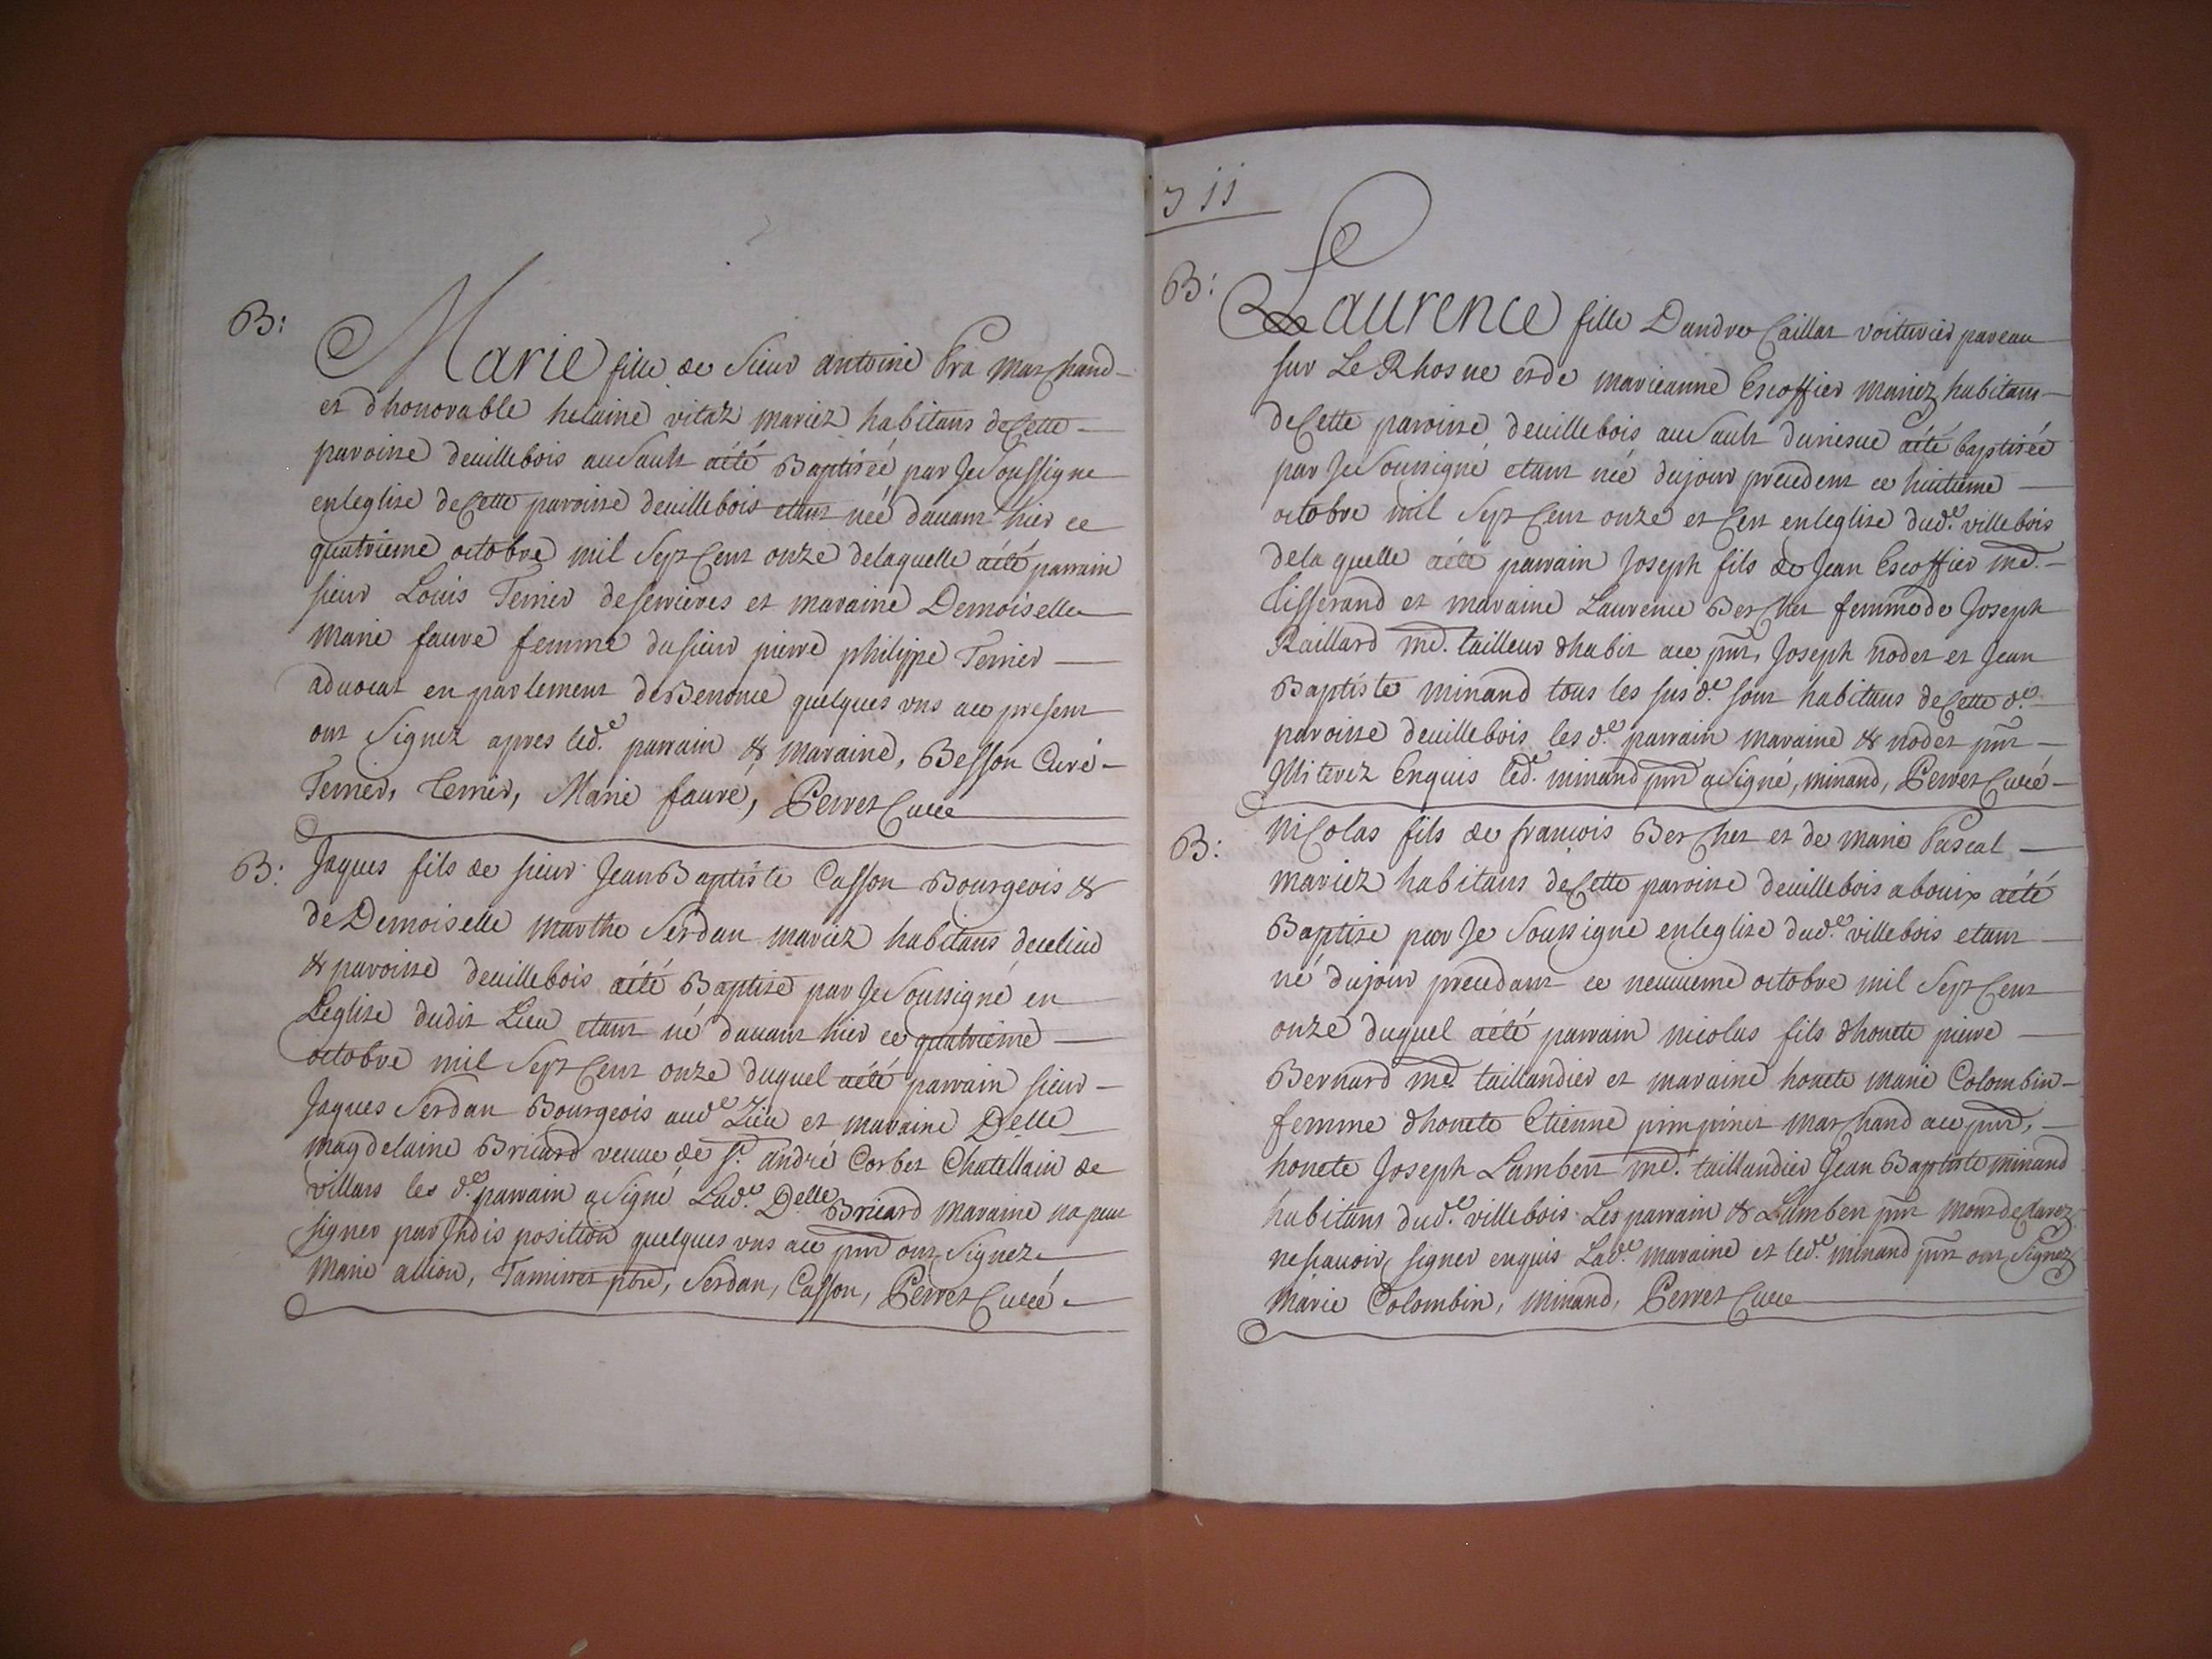 B:
Marie fille de Sieur antoine Pra marchand
et dhonorable helaine vitaz mariez habitans de Cette
paroisse deuillebois au Sault aété Baptiséé par Je Soussigne
en leglise de Cette paroisse deuillebois etant néé dauant hier ce
quatrieme octobre mil Sept Cent onze delaquelle aété parrain
sieur Louis Terrier de serrieres et maraine Demoiselle
Marie faure femme du sieur pierre philippe Terrier
aduocat en parlement de quelques vns ace present
ont Signez apres led.e parrain & maraine, Besson Curé
Terrier, terrier, Marie faure, Perret Curé
B:
Jaques fils de sieur Jean Baptiste Casson Bourgeois &
de Demoiselle marthe Serdan mariez habitans decelieu
& paroisse deuillebois aété Baptise par Je Soussigné en
Leglise dudit Lieu etant né dauant hier ce quatrieme
octobre mil Sept Cent onze duquel aété parrain sieur
Jaques Serdan Bourgeois aud.e Lieu et maraine Delle
magdelaine Bricard veuue de Sr. andré Corbet Chatellain de
villars les d.e parrain a Signé Lad.e Delle Bricard maraine na peut
signer par Jndisposition quelques vns ace pnt ont Signez
Marie allion, Taminet ptre, Serdan, Casson, Perret Curé
J 11
B:
Laurence fille Dandre Caillat voiturier par eau
sur Le Rhosne et de marieanne Escoffier mariez habitans
de Cette paroisse deuillebois au Sault aété baptisée
par Je Soussigné etant néé du jour precedent ce huitieme
octobre mil Sept Cent onze et Cest en leglise dud.e villebois
de la quelle aété parrain Joseph fils de Jean Escoffier md.
tisserand et maraine Laurence Berchet femme de Joseph
Raillard md. tailleur dhabit ace pnt, Joseph nodet et Jean
Baptiste minand tous les susd.e sont habitans de Cette d.e
paroisse deuillebois les d.e parrain maraine & nodet pnt
Jlliterez Enquis led.e minand pnt a Signé, minand, Perret Curé
B:
Nicolas fils de francois Berchet et de marie Pascal
mariez habitans de Cette paroisse deuillebois a bouix aété
Baptise par Je Soussigné en leglise dud.e villebois etant
né du jour precedant ce neuuieme octobre mil Sept Cent
onze duquel aété parrain nicolas fils dhonete pierre
Bernard md. taillandier et maraine honete marie Colombin
femme dhonete Etienne pimpinet marchand ace pnt,
honete Joseph Lambert md. taillandier Jean Baptiste minand
habitans dud.e villebois. Les parrain & Lambert pnt mont declarez
ne scauoir signer enquis Lad.e maraine et led.e minand pnt ont Signez
Marie Colombin, minand, Perret Curé